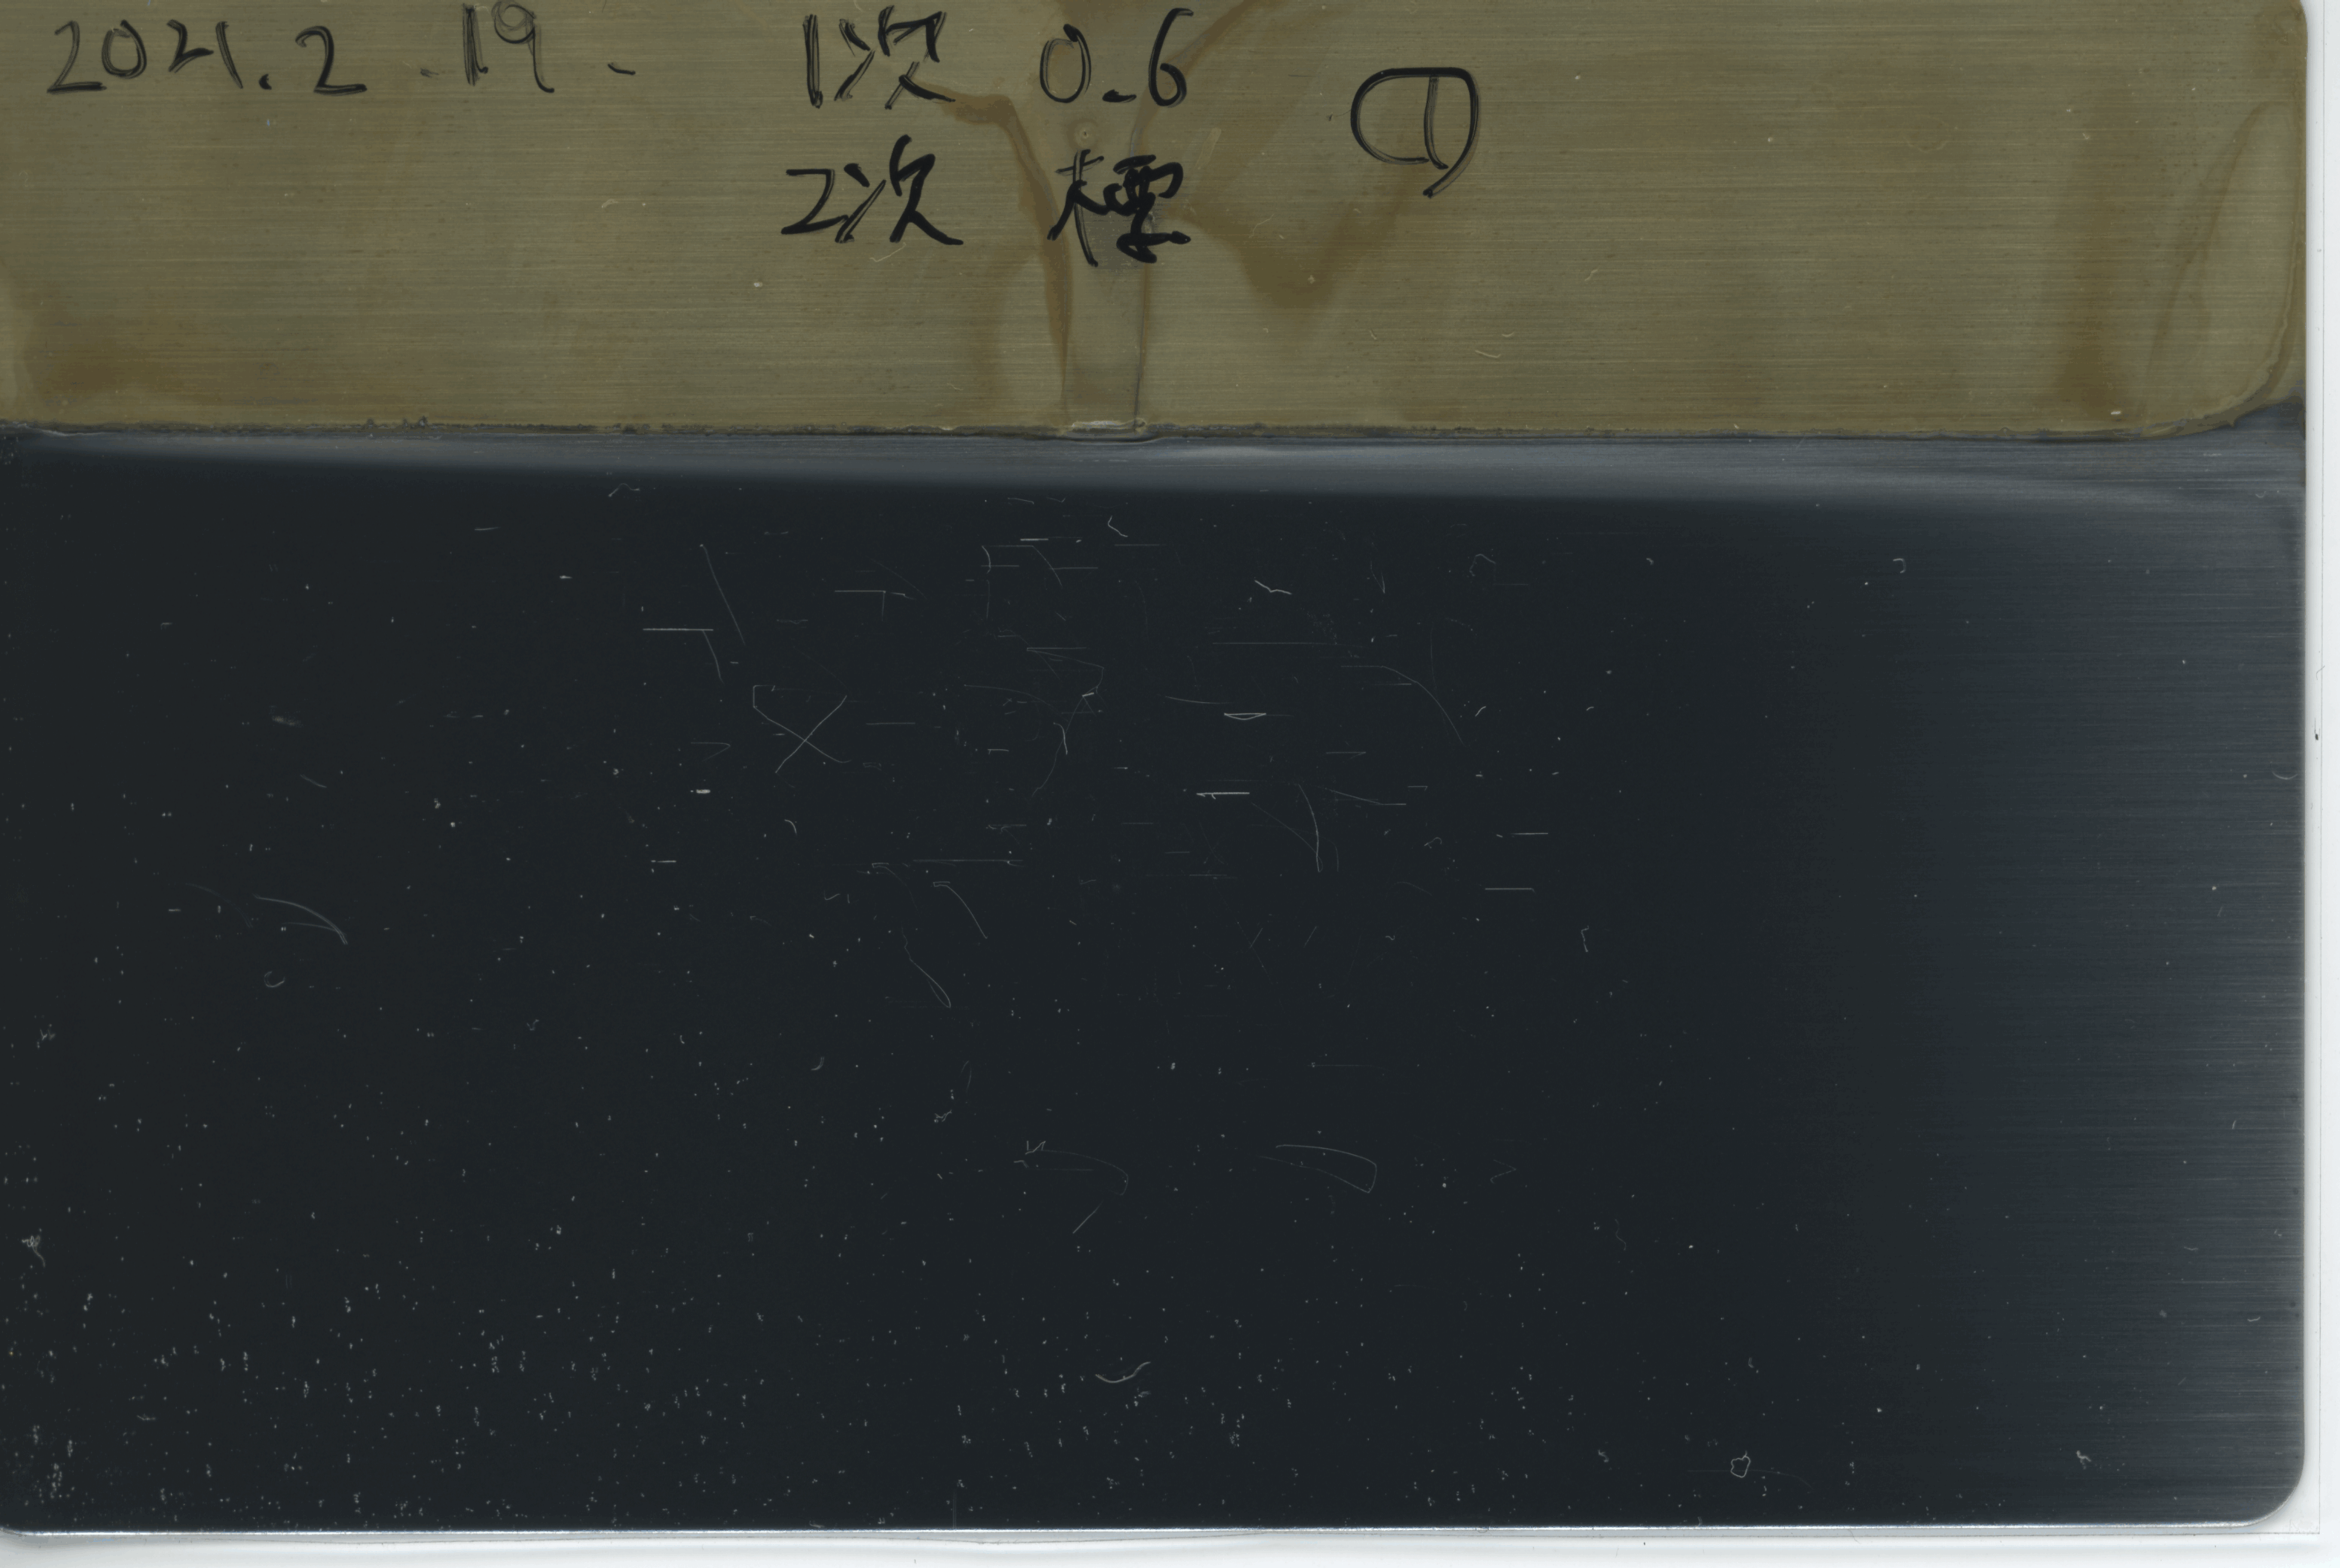 2021.2.19. 1次 0.6 ①
2次 標